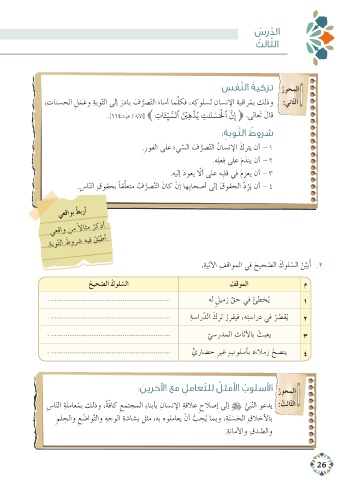 الدّرسُ
الثّالثُ
المحورُ
الثّاني:
تزكيةُ النّفسِ
وذلك بمراقبةِ الإنسانِ لسلوكِه، فكلّما أساءَ التّصرُّفَ بادرَ إلى التّوبةِ وعملِ الحسناتِ؛
قالَ تعالى: ﴿ إِنَّ ٱلْحَسَنَٰتِ يُذْهِبْنَ ٱلسَّيِّـَٔاتِ ﴾ [هود: ١١٤].
شروطُ التَّوبةِ:
١ - أن يتركَ الإنسانُ التّصرُّفَ السّيّئَ على الفورِ.
٢ - أن يندمَ على فعلِه.
٣ - أن يعزمَ في قلبِه على ألّا يعودَ إليه.
٤ - أن يَرُدَّ الحقوقَ إلى أصحابِها إن كانَ التّصرُّفُ متعلّقًا بحقوقِ النّاسِ.
أربطُ بواقعي
أذكرُ مثالًا من واقعي
أُطبِّقُ فيه شروطَ التّوبةِ.
٢. أُبيّنُ السّلوكَ الصّحيحَ في المواقفِ الآتيةِ.
م الموقفُ السّلوكُ الصّحيحُ
١ يُخطئُ في حقِّ زميلٍ له
٢ يُقصّرُ في دراستِه، فيقررُ تركَ الدّراسةِ
٣ يعبثُ بالأثاثِ المدرسيِّ
٤ ينصحُ زملاءَه بأسلوبٍ غيرِ حضاريٍّ
المحورُ
الثّالثُ:
الأسلوبُ الأمثلُ للتّعاملِ مع الآخرينَ:
يدعو النّبيُّ ﷺ إلى إصلاحِ علاقةِ الإنسانِ بأبناءِ المجتمعِ كافّةً، وذلك بمعاملةِ النّاسِ
بالأخلاقِ الحَسَنةِ، وبما يُحِبُّ أن يعاملوه به، مثل بشاشةِ الوجهِ والتّواضُعِ والحلمِ
والصّدقِ والأمانةِ.
26